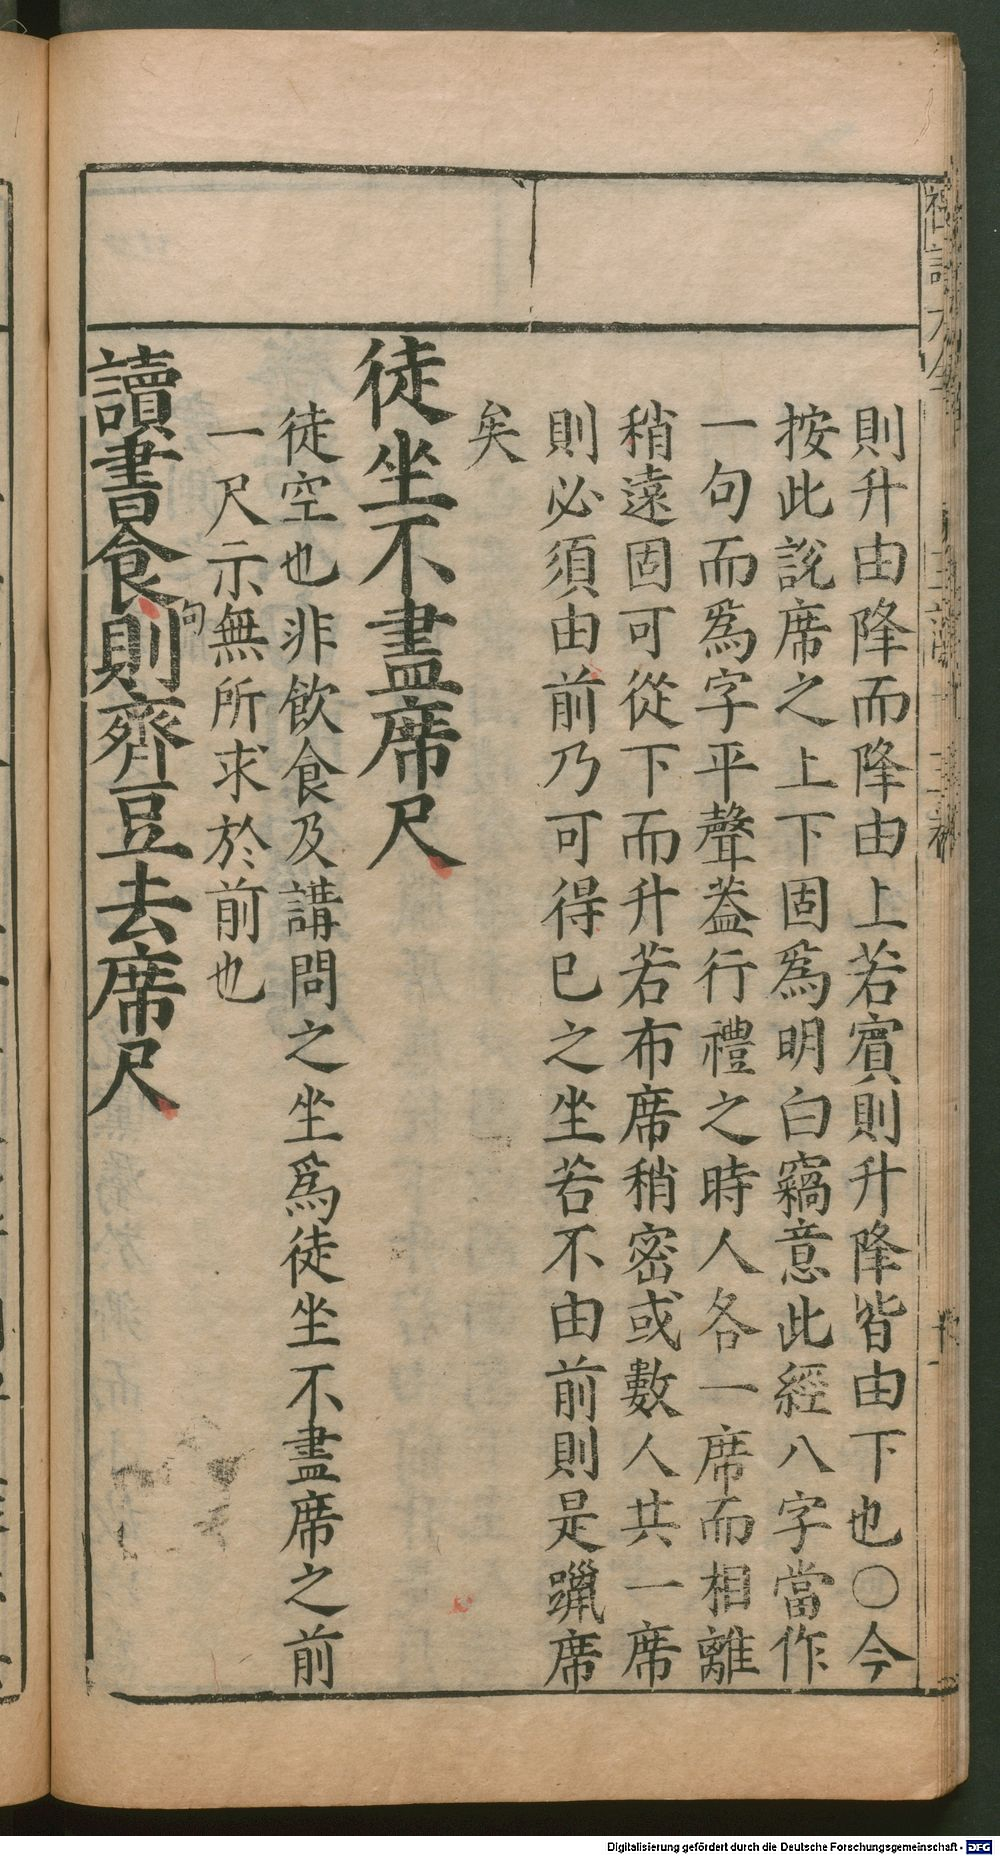 則升由降而降由上若賓則升降皆由下也○今
按此說席之上下固爲明白竊意此經八字當作
一句而爲字平聲葢行禮之時人各一席而相離
稍遠固可從下而升若布席稍密或數人共一席
則必須由前乃可得已之坐若不由前則是躐席
矣
徒坐不盡席尺
徒空也非飲食及講問之坐爲徒坐不盡席之前
一尺示無所求於前也
讀書食句則齊豆去席尺
Digitalisierung gefördert durch die Deutsche Forschungsgemeinschaft - DFG